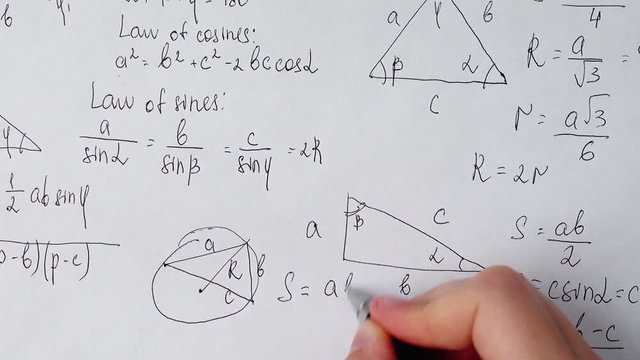 Law of cosines:
a² = b² + c² - 2bc cosα
Law of sines:
a/sinα = b/sinβ = c/sinγ = 2R
1/2 ab sinγ
p-b)(p-c)
a γ b
β α
c
4
R = a/√3 =
r = a√3/6
R = 2r
a
R b
c
a β c
α
b
S = ab/2
S = a
= c sinα = c
b-c